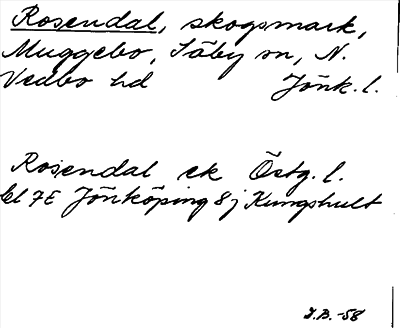 Rosendal, skogsmark,
Muggebo, Säby sn, N.
Vedbo hd Jönk. l.
Rosendal ek Östg. l.
bl 7E Jönköping 8j Kungshult
I.B. -58